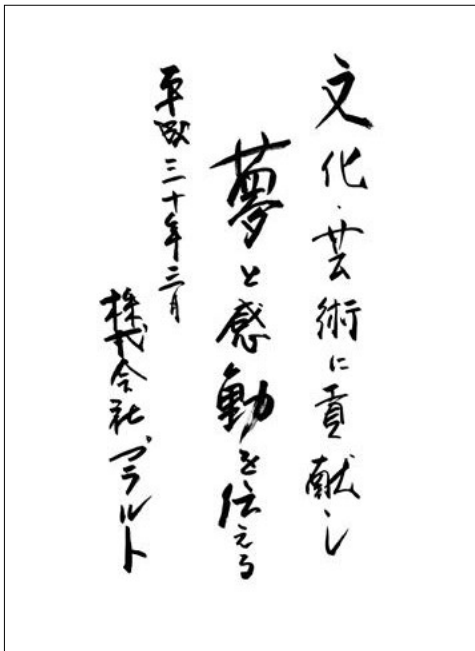 文化・芸術に貢献し
夢と感動を伝える
平成三十年三月
株式会社プラルト